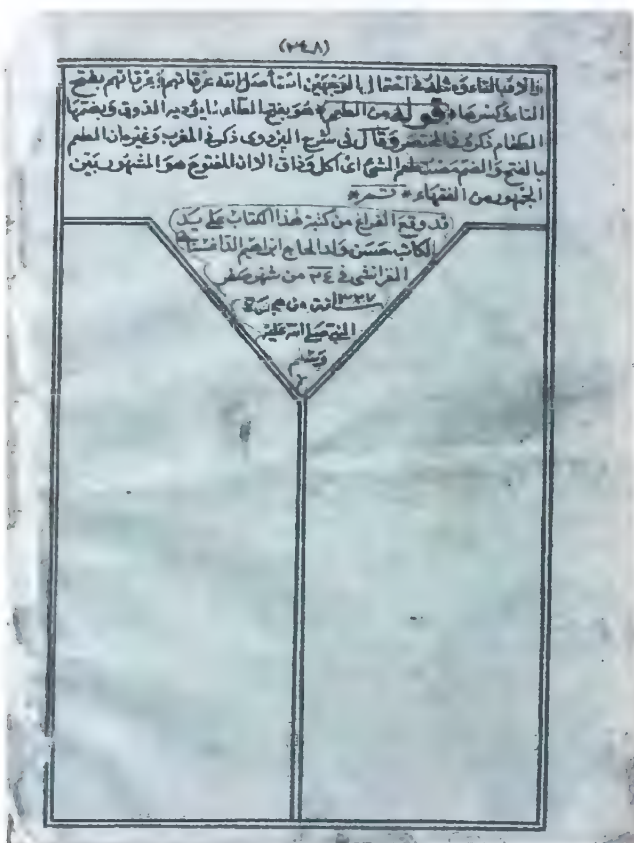 (٣٤٨)
والا فبالتاء ومثله في احتمال الوجهين استأصل الله عرقاتهم عرقاتهم بفتح
التاء وكسرها * قوله من الطعم * هو بفتح الطاء ما يؤديه الذوق وبضمها
الطعام ذكره في المختصر وقال في شرح البزدوي ذكر في المغرب وغيره ان الطعم
بالفتح والضم مصدر طعم الشئ اي اكل وذاق الا ان المفتوح هو المشهور بين
الجمهور من الفقهاء * تم *
قد وقع الفراغ من كتبة هذا الكتاب على يد
الكاتب حسن ولد الحاج ابراهيم
في ٢٤ من شهر صفر
١٣٣٧ من هجرة
النبي صلى الله عليه
وسلم
م